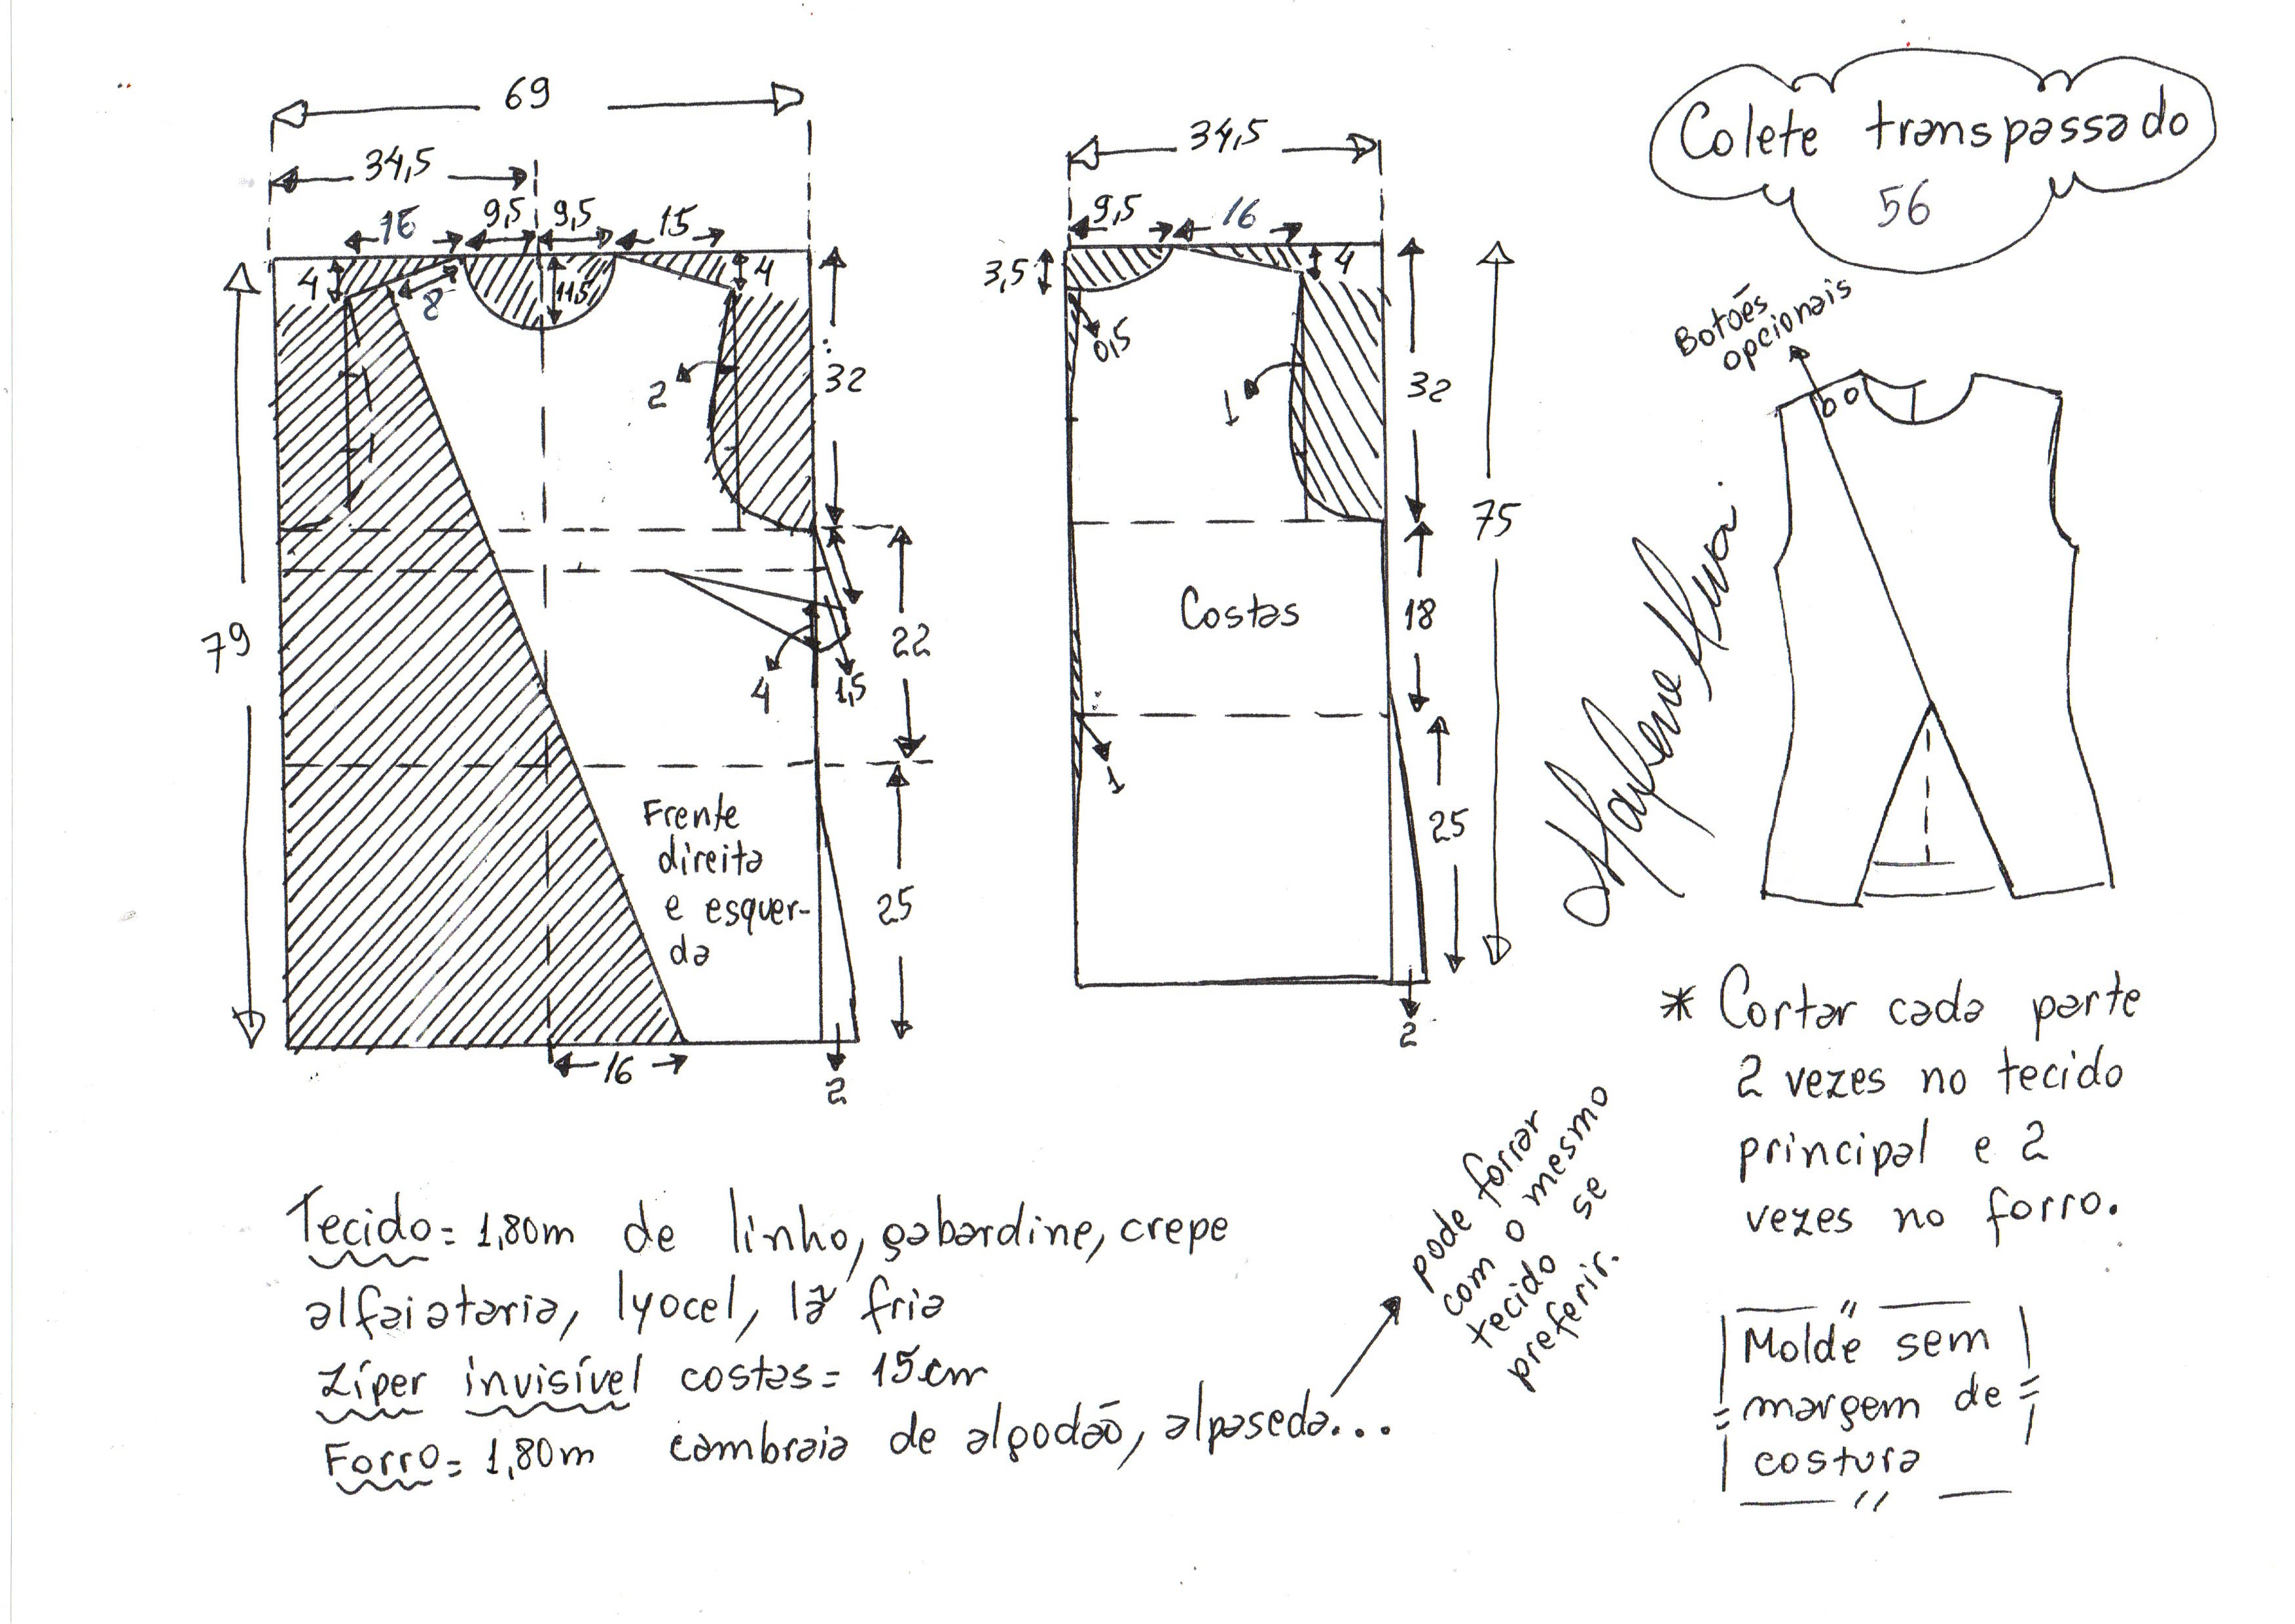 69
34,5
16
9,5
9,5
15
4
8
11,5
4
2
32
79
22
4
1,5
Frente
direita
e esquer-
da
25
16
2
34,5
9,5
16
3,5
4
0,5
1
32
75
Costas
18
1
25
2
Colete transpassado
56
Botões
opcionais
* Cortar cada parte
2 vezes no tecido
principal e 2
vezes no forro.
Molde sem
margem de
costura
Tecido = 1,80m de linho, gabardine, crepe
alfaiataria, lyocel, lã fria
Zíper invisível costas = 15cm
Forro = 1,80m cambraia de algodão, alpaseda...
pode forrar
com o mesmo
tecido se
preferir.